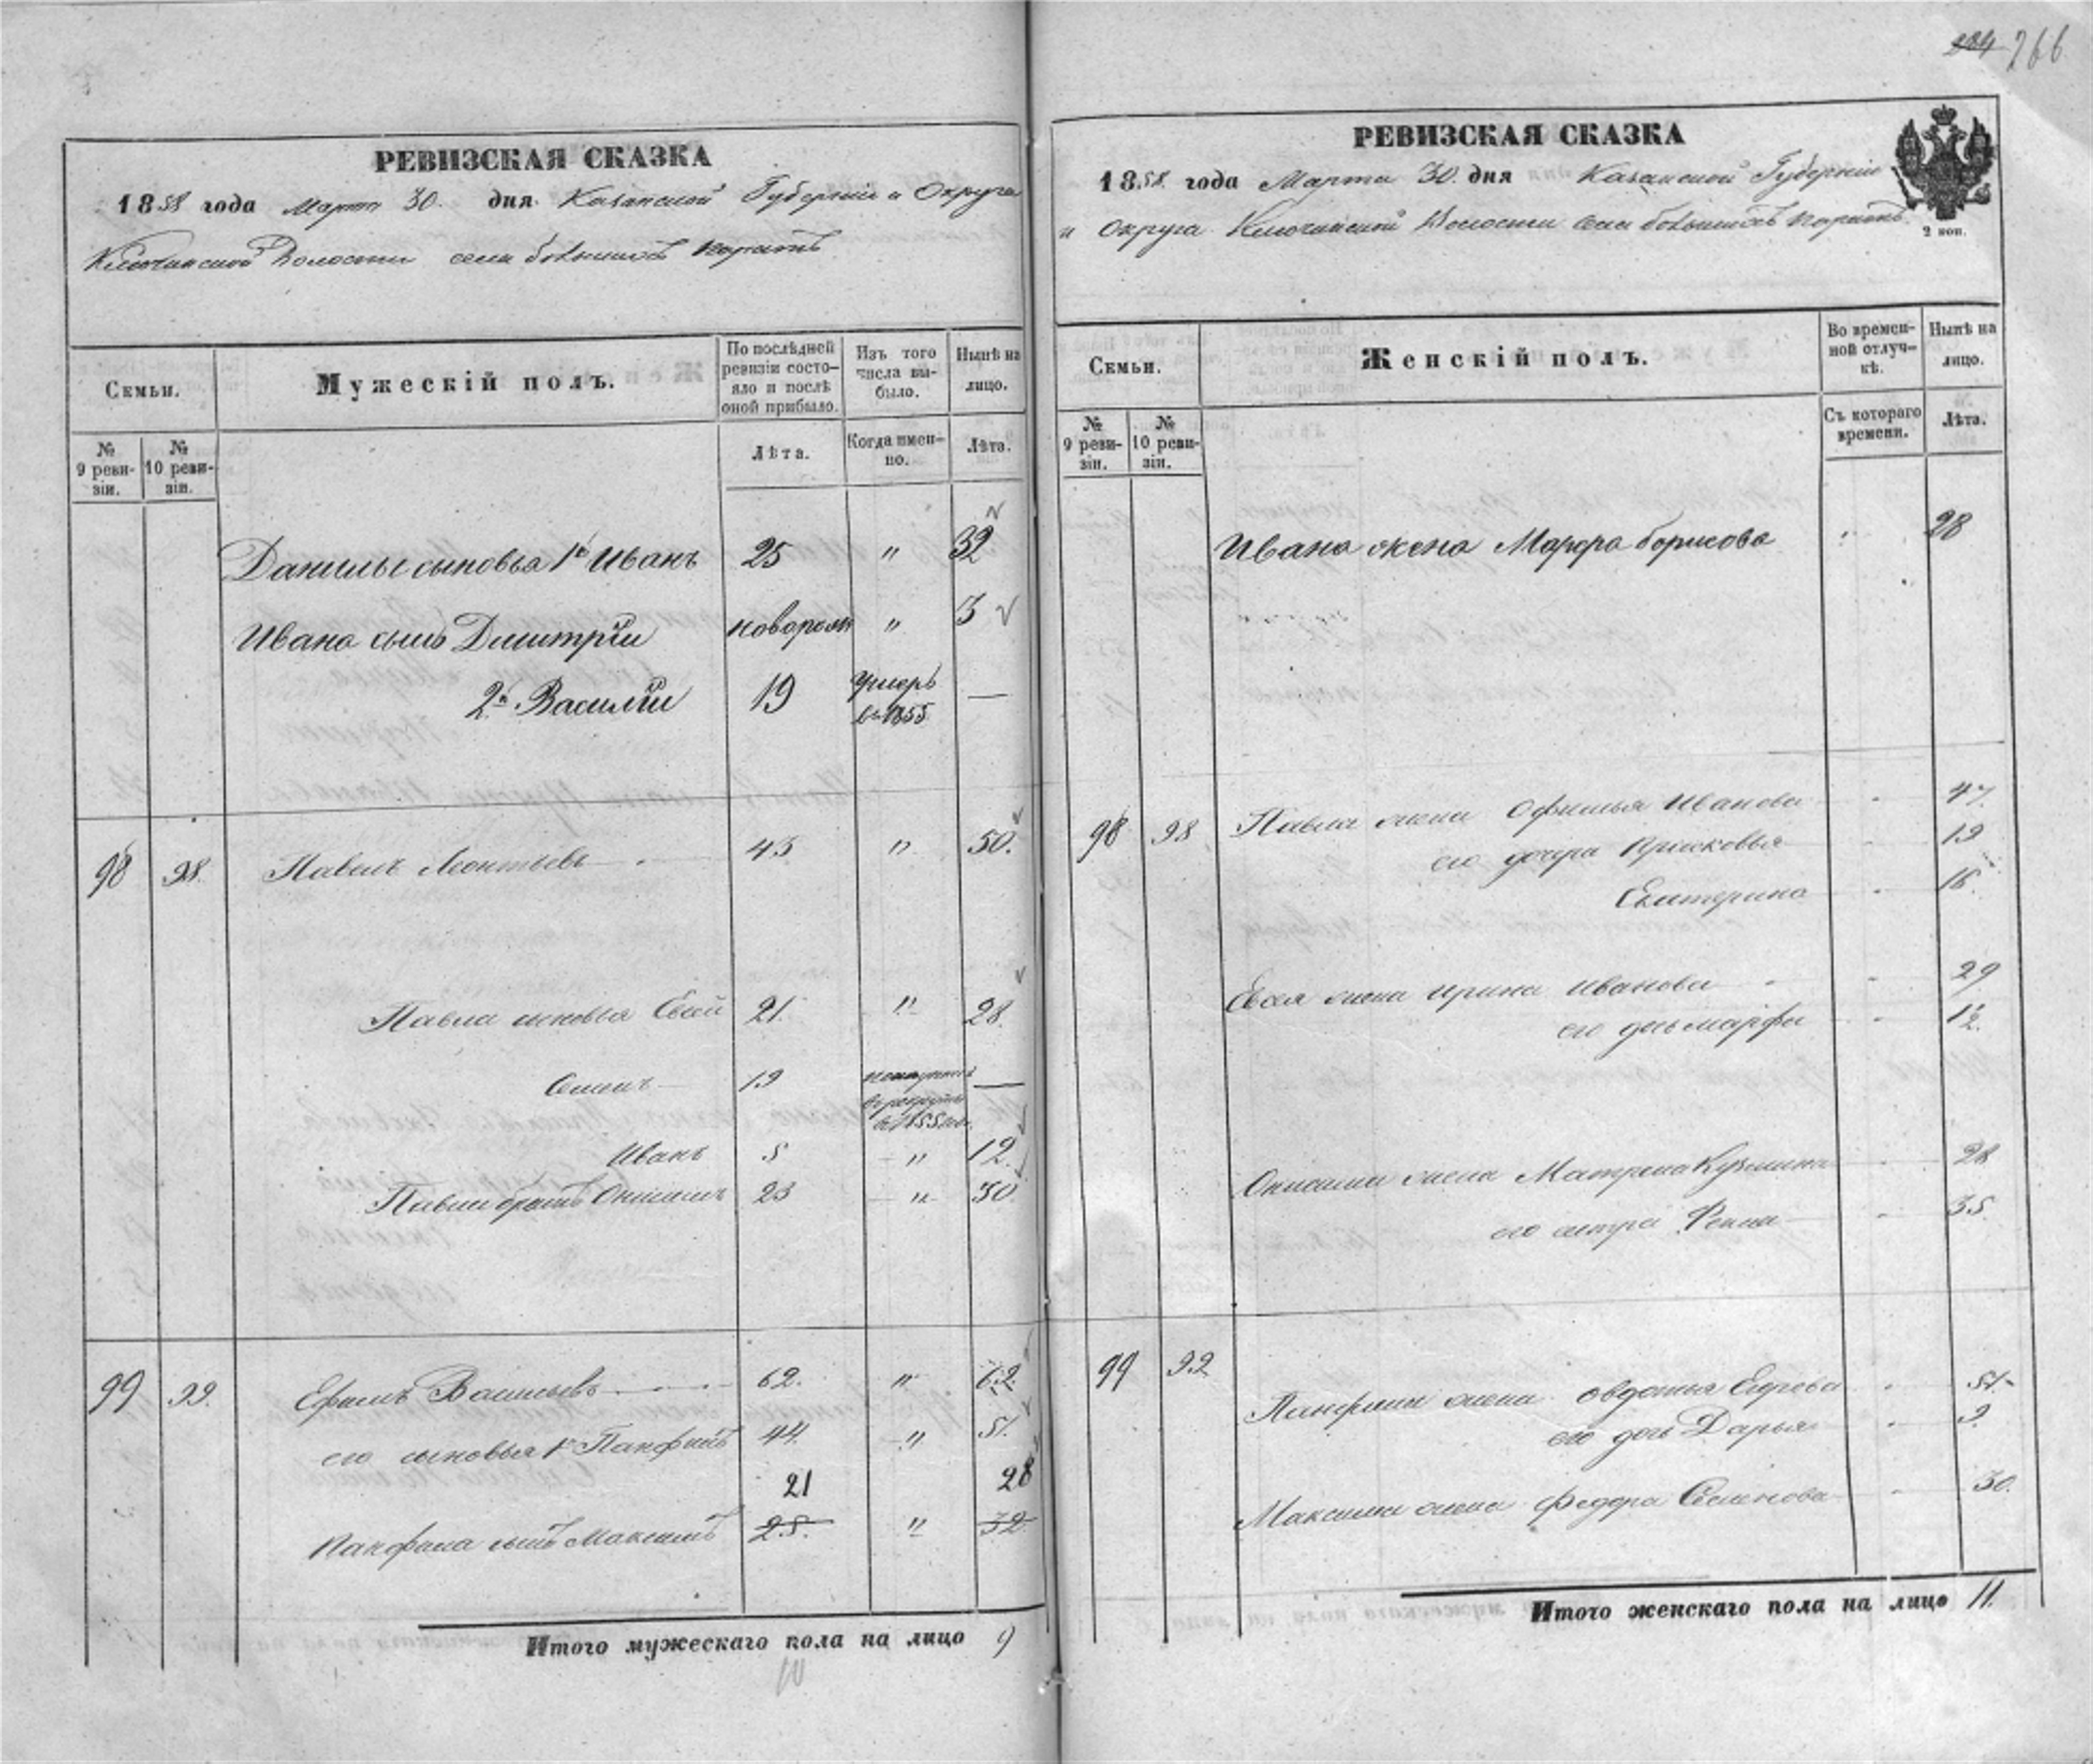 204 266
РЕВИЗСКАЯ СКАЗКА
1858 года Марта 30. дня Казанской Губерніи и Округа
Ключинской Волости села
Семьи.
Мужескій полъ.
По послѣдней ревизіи состояло и послѣ оной прибыло.
Изъ того числа выбыло.
Нынѣ на лицо.
№ 9 ревизіи.
№ 10 ревизіи.
Лѣта.
Когда именно.
Лѣта.
Данилы сыновья 1й Иванъ 25 " 32
Ивана сынъ Дмитрій новорож " 3
2й Василій 19 Умеръ въ 1855 —
98 98. Павелъ Леонтьевъ 43 " 50.
Павла сыновья Евсей 21. " 28.
Семенъ 19 въ рекруты въ 1855 —
Иванъ 5 " 12.
Павла братъ Онисимъ 23 " 30.
99 99. Ефремъ Васильевъ 62. " 62
его сыновья 1й Панфилъ 44. " 51.
21 28
Панфила сынъ Максимъ 25. " 32
Итого мужескаго пола на лицо 9
10
РЕВИЗСКАЯ СКАЗКА
1858. года Марта 30. дня Казанской Губерніи
и Округа Ключинской Волости села
2 коп.
Семьи.
Женскій полъ.
Во временной отлучкѣ.
Нынѣ на лицо.
№ 9 ревизіи.
№ 10 ревизіи.
Съ котораго времени.
Лѣта.
Ивана жена Марфа Борисова 28
98 98 Павла жена Офимья Иванова 47.
его дочери Прасковья 19
Екатерина 16.
Евсея жена Ирина Иванова 29
его дочь Марфа 12.
Онисима жена Матрена Кузмина 28
его сестра 35.
99 99 Панфила жена Овдотья 51.
его дочь Дарья 9.
Максима жена Федора Семенова 30.
Итого женскаго пола на лицо 11.